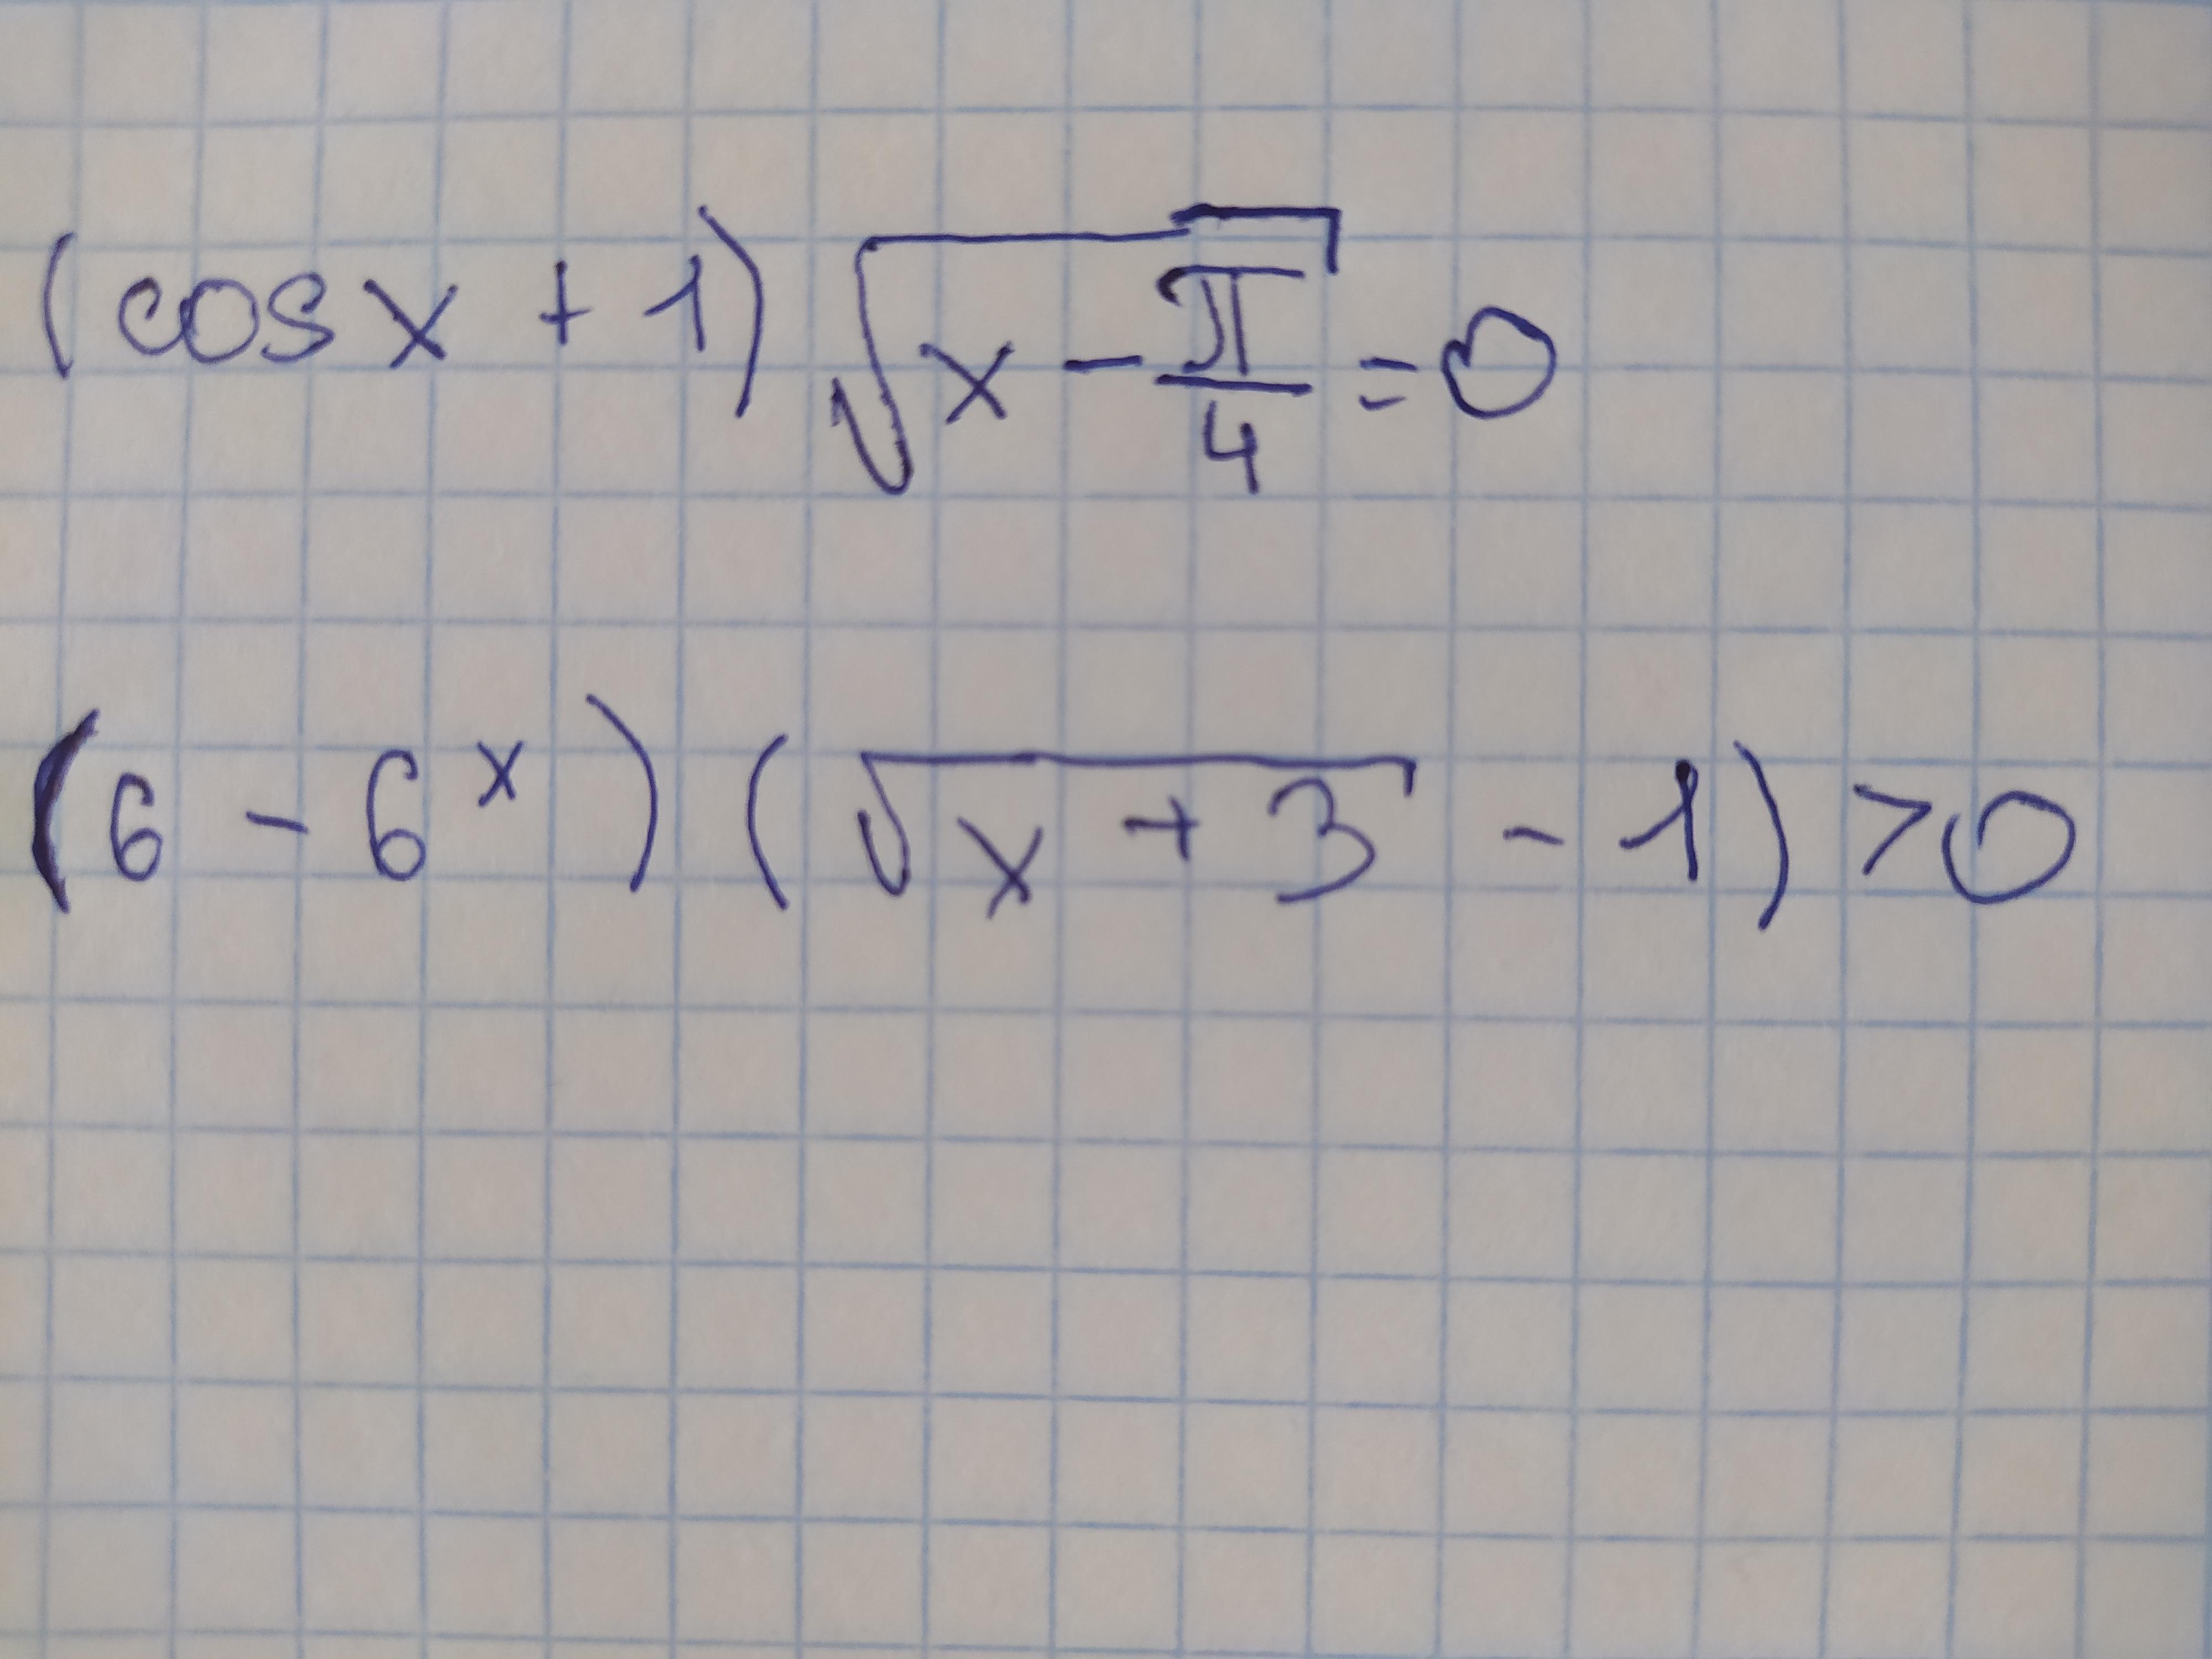 (cos x + 1) √(x - π/4) = 0
(6 - 6^x) (√(x + 3) - 1) > 0